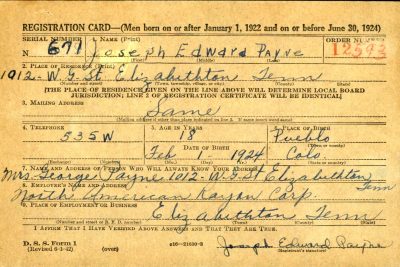 REGISTRATION CARD—(Men born on or after January 1, 1922 and on or before June 30, 1924)
SERIAL NUMBER 1. NAME (Print) ORDER NUMBER
677 Joseph Edward Payne 12593
(First) (Middle) (Last)
2. PLACE OF RESIDENCE (Print)
1012-W. G. St. Elizabethton Tenn
[THE PLACE OF RESIDENCE GIVEN ON THE LINE ABOVE WILL DETERMINE LOCAL BOARD
JURISDICTION; LINE 2 OF REGISTRATION CERTIFICATE WILL BE IDENTICAL]
3. MAILING ADDRESS
Same
[Mailing address if other than place indicated on line 2. If same insert word same]
4. TELEPHONE 5. AGE IN YEARS 6. PLACE OF BIRTH
535W 18 Pueblo
DATE OF BIRTH
Feb 1924 Colo.
(Exchange) (Number) (Mo.) (Day) (Yr.) (State or country)
7. NAME AND ADDRESS OF PERSON WHO WILL ALWAYS KNOW YOUR ADDRESS
Mrs. George Payne 1012-W. G. St Elizabethton Tenn
8. EMPLOYER'S NAME AND ADDRESS
North American Rayon Corp
9. PLACE OF EMPLOYMENT OR BUSINESS
Elizabethton Tenn
(Number and street or R. F. D. number) (Town) (County) (State)
I AFFIRM THAT I HAVE VERIFIED ABOVE ANSWERS AND THAT THEY ARE TRUE.
D. S. S. Form 1 (over) 16—21630-2 Joseph Edward Payne